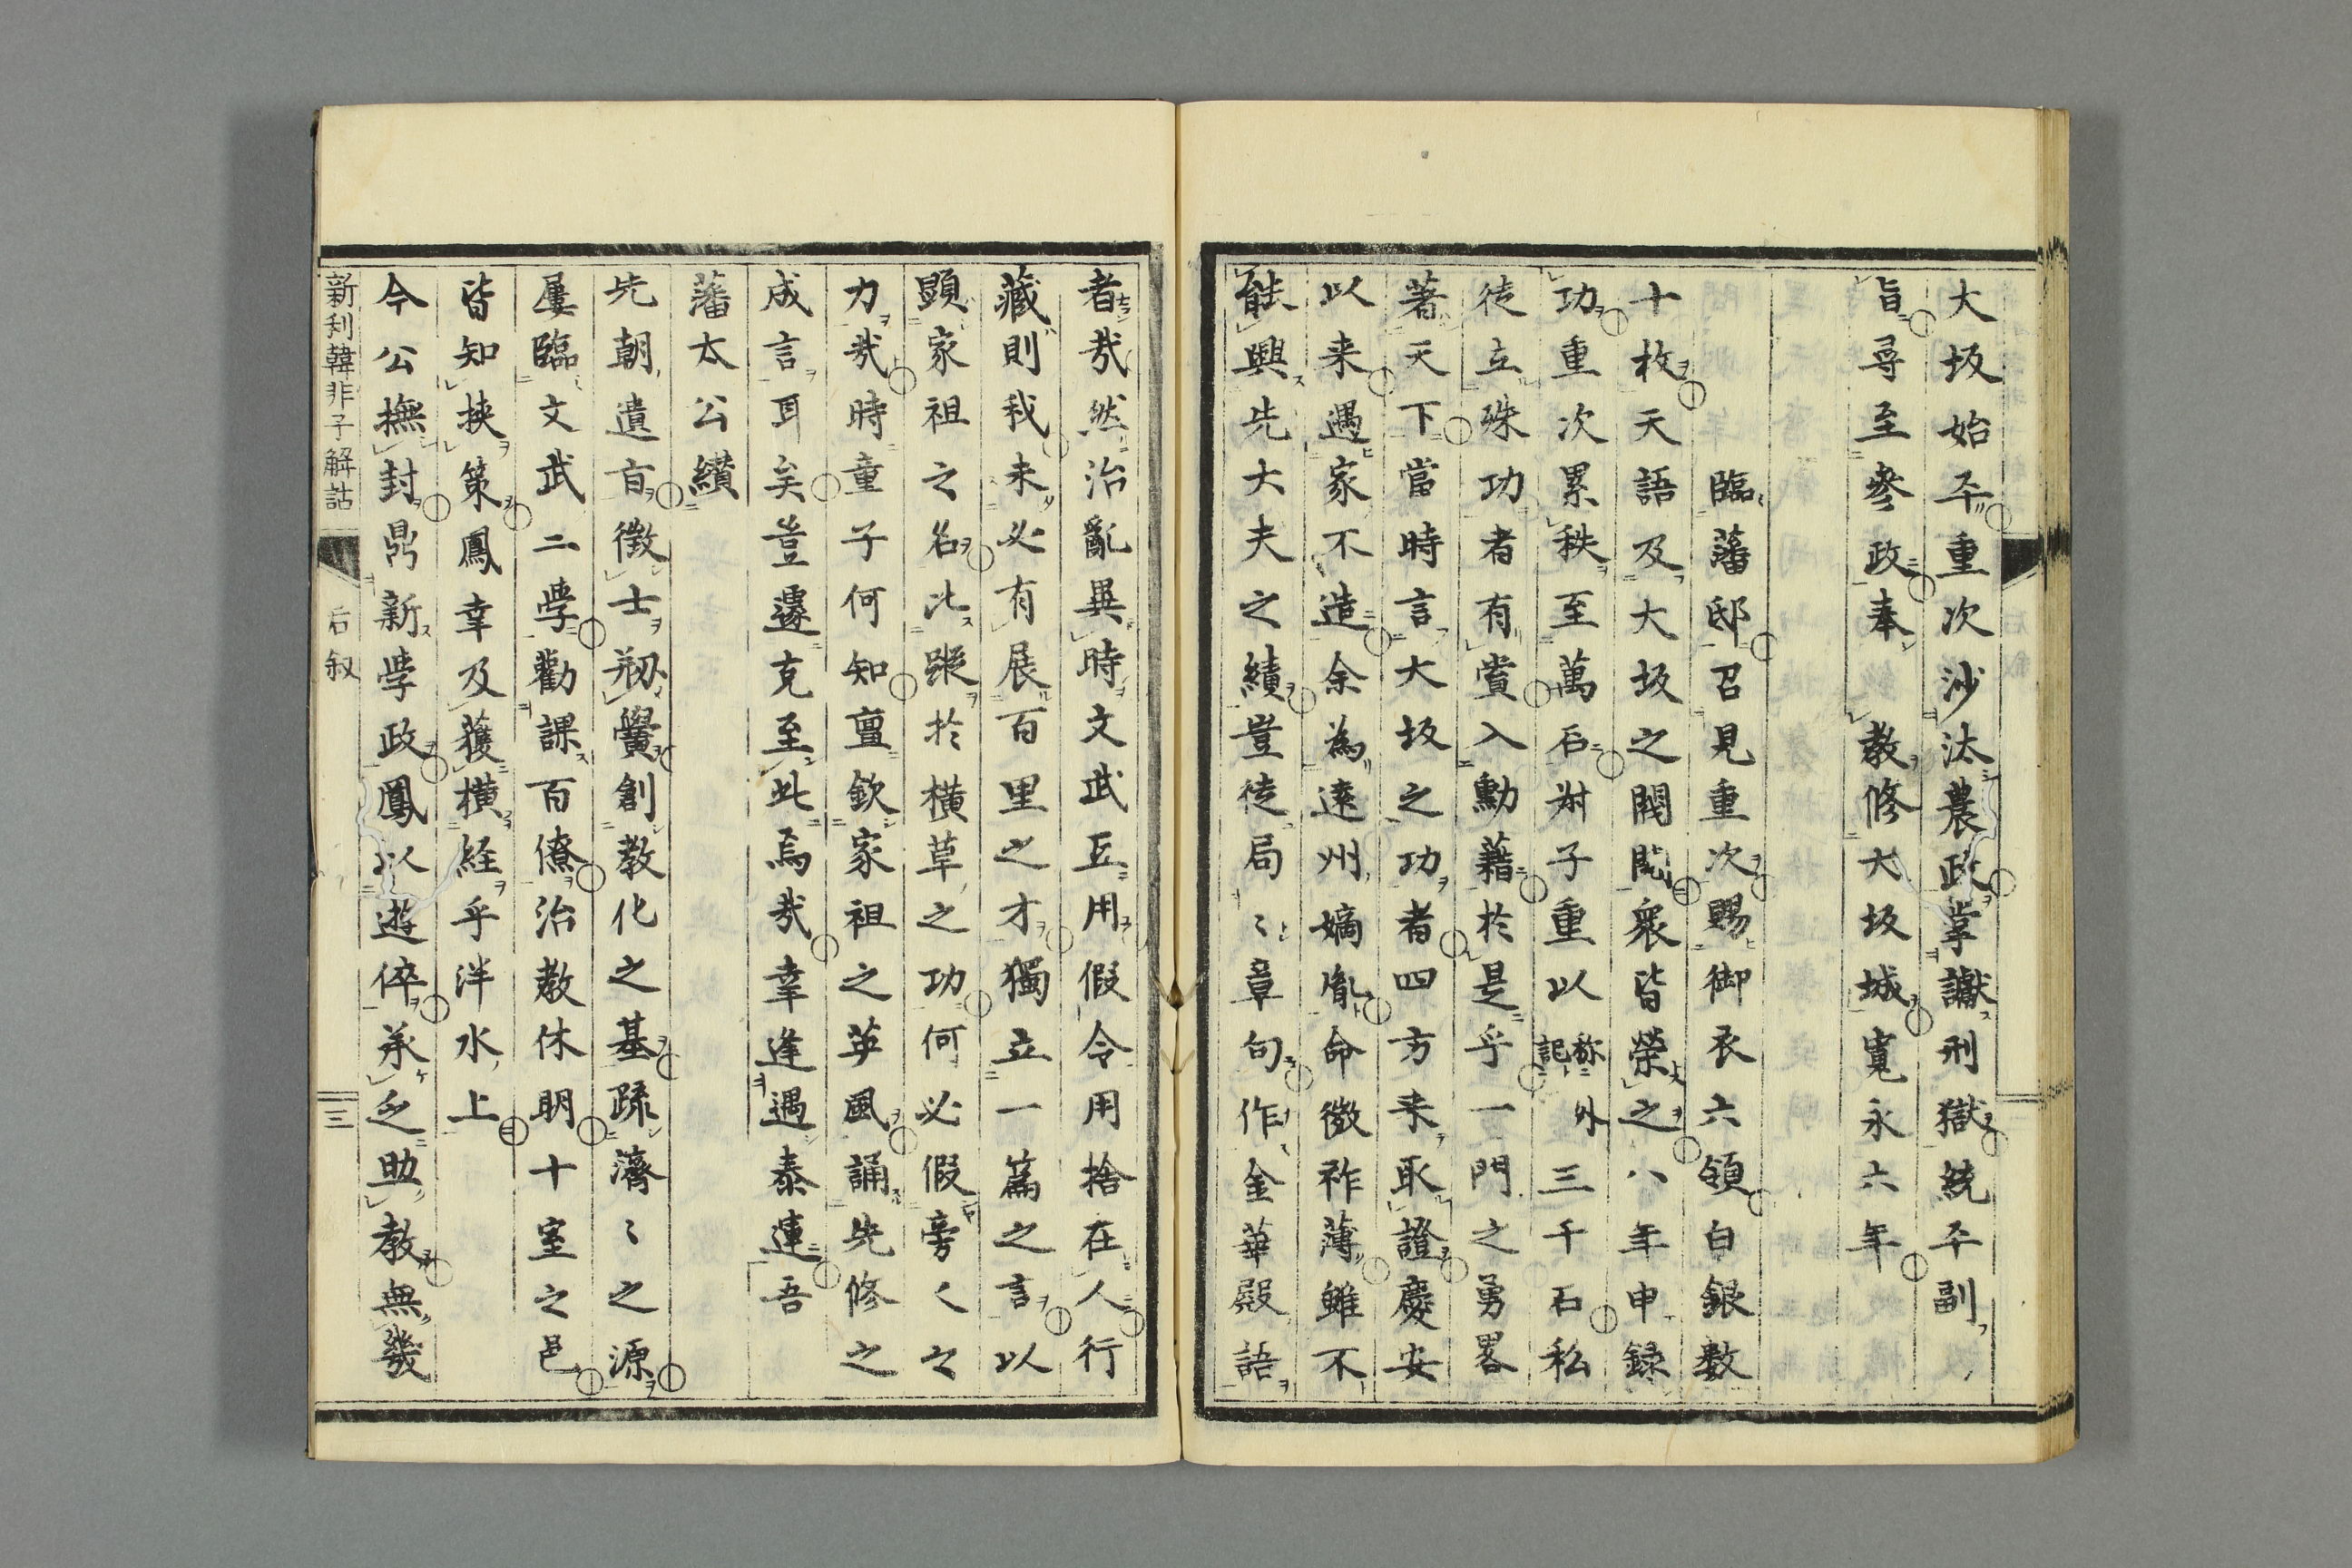 大坂始平重次沙汰農政掌讞刑獄統平副
旨尋至參政奉　教修大坂城寛永六年
臨藩邸召見重次賜御衣六領白銀數
十枚天語及大坂之閥閱衆皆榮之八年申錄
功重次累秩至萬石耐子重以称記外三千石私
徒立殊功者有賞入勳藉於是乎一門之勇畧
著天下當時言大坂之功者四方来取證慶安
以来遇家不造余為遠州嫡胤命徴祚薄雖不
能興先大夫之績豈徒局〻章句作金華殿語
者哉然治亂異時文武互用假令用捨在人行
藏則我未必有展百里之才獨立一篇之言以
顕家祖之名比蹤於横草之功何必假旁〱之
力哉時童子何知亶欽家祖之英風誦先修之
成言耳矣豈遽克至此焉哉幸逢遇泰運吾
藩太公纘
先朝遺旨徴士剏黌創教化之基疏濟〻之源
屢臨文武二學勸課百僚治教休明十室之邑
皆知挟策鳳幸及獲横経乎泮水上
今公撫封鼎新學政鳳以遊倅承乏助教無幾
新刋韓非子解詁　后叙　三